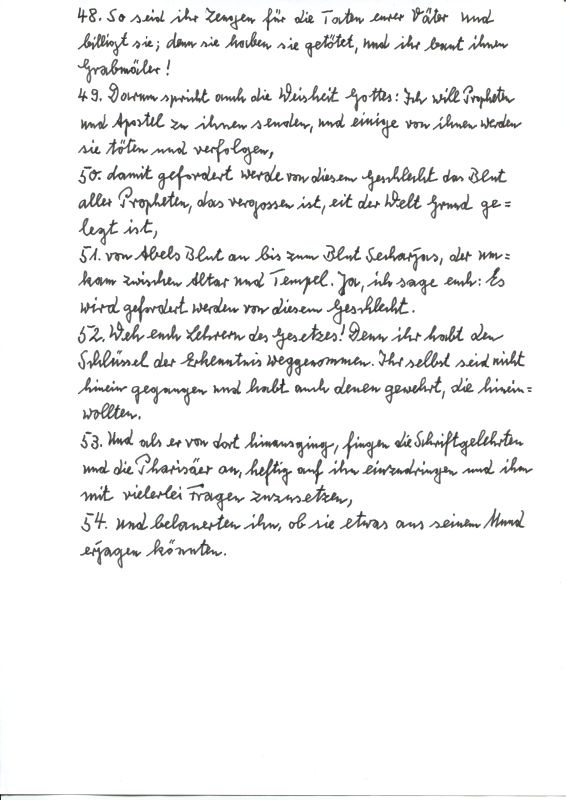 48. So seid ihr Zeugen für die Taten eurer Väter und
billigt sie; denn sie haben sie getötet, und ihr baut ihnen
Grabmäler!
49. Darum spricht auch die Weisheit Gottes: Ich will Propheten
und Apostel zu ihnen senden, und einige von ihnen werden
sie töten und verfolgen,
50. damit gefordert werde von diesem Geschlecht das Blut
aller Propheten, das vergossen ist, eit der Welt Grund ge=
legt ist,
51. von Abels Blut an bis zum Blut Secharjas, der um=
kam zwischen Altar und Tempel. Ja, ich sage euch: Es
wird gefordert werden von diesem Geschlecht.
52. Weh euch Lehrern des Gesetzes! Denn ihr habt den
Schlüssel der Erkenntnis weggenommen. Ihr selbst seid nicht
hinein gegangen und habt auch denen gewehrt, die hinein=
wollten.
53. Und als er von dort hinausging, fingen die Schriftgelehrten
und die Pharisäer an, heftig auf ihn einzudringen und ihn
mit vielerlei Fragen zuzusetzen,
54. und belauerten ihn, ob sie etwas aus seinem Mund
erjagen könnten.